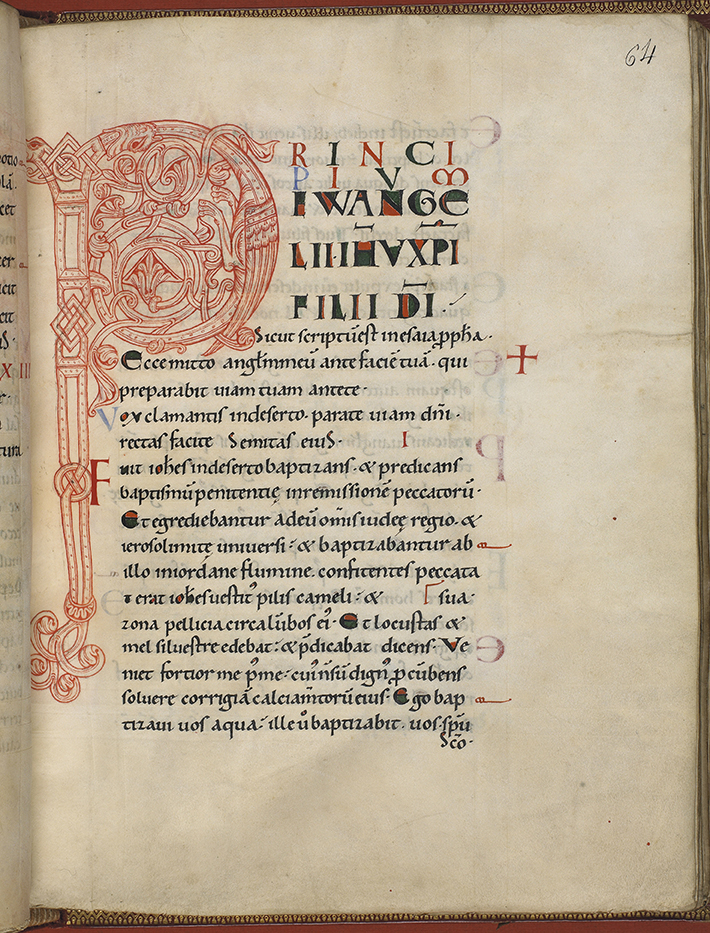 64
P RINCI
PIUM
IWANGE
LII·IHU XPI
FILII DI·
Sicut scriptũ est in esaia ꝓpha·
Ecce mitto anglm̃ meũ ante faciẽ tuã· qui
preparabit uiam tuam ante te·
Vox clamantis in deserto· parate uiam dñi·
rectas facite Semitas eiuS· I
Fuit iohes in deserto baptizans· & predicans
baptismũ penitentię in remissionẽ peccatorũ·
Et egrediebantur ad eũ om̃is iudeę regio· &
ierosolimitę uniuersi· & baptizabantur ab
illo in iordane flumine confitentes peccata
Et erat iohes uestit᾽ pilis cameli· & sua·
zona pellicia circa lũbos ei᾽· Et locustas &
mel siluestre edebat· & p̃dicabat dicens· Ve
niet fortior me p᾽ me· cui᾽ ñ sũ dign᾽ ꝓcũbens
soluere corrigiã calciam̃torũ eius· Ego bap
tizaui uos aqua· ille u̾o baptizabit· uos· sp̃u
Sc̃o·